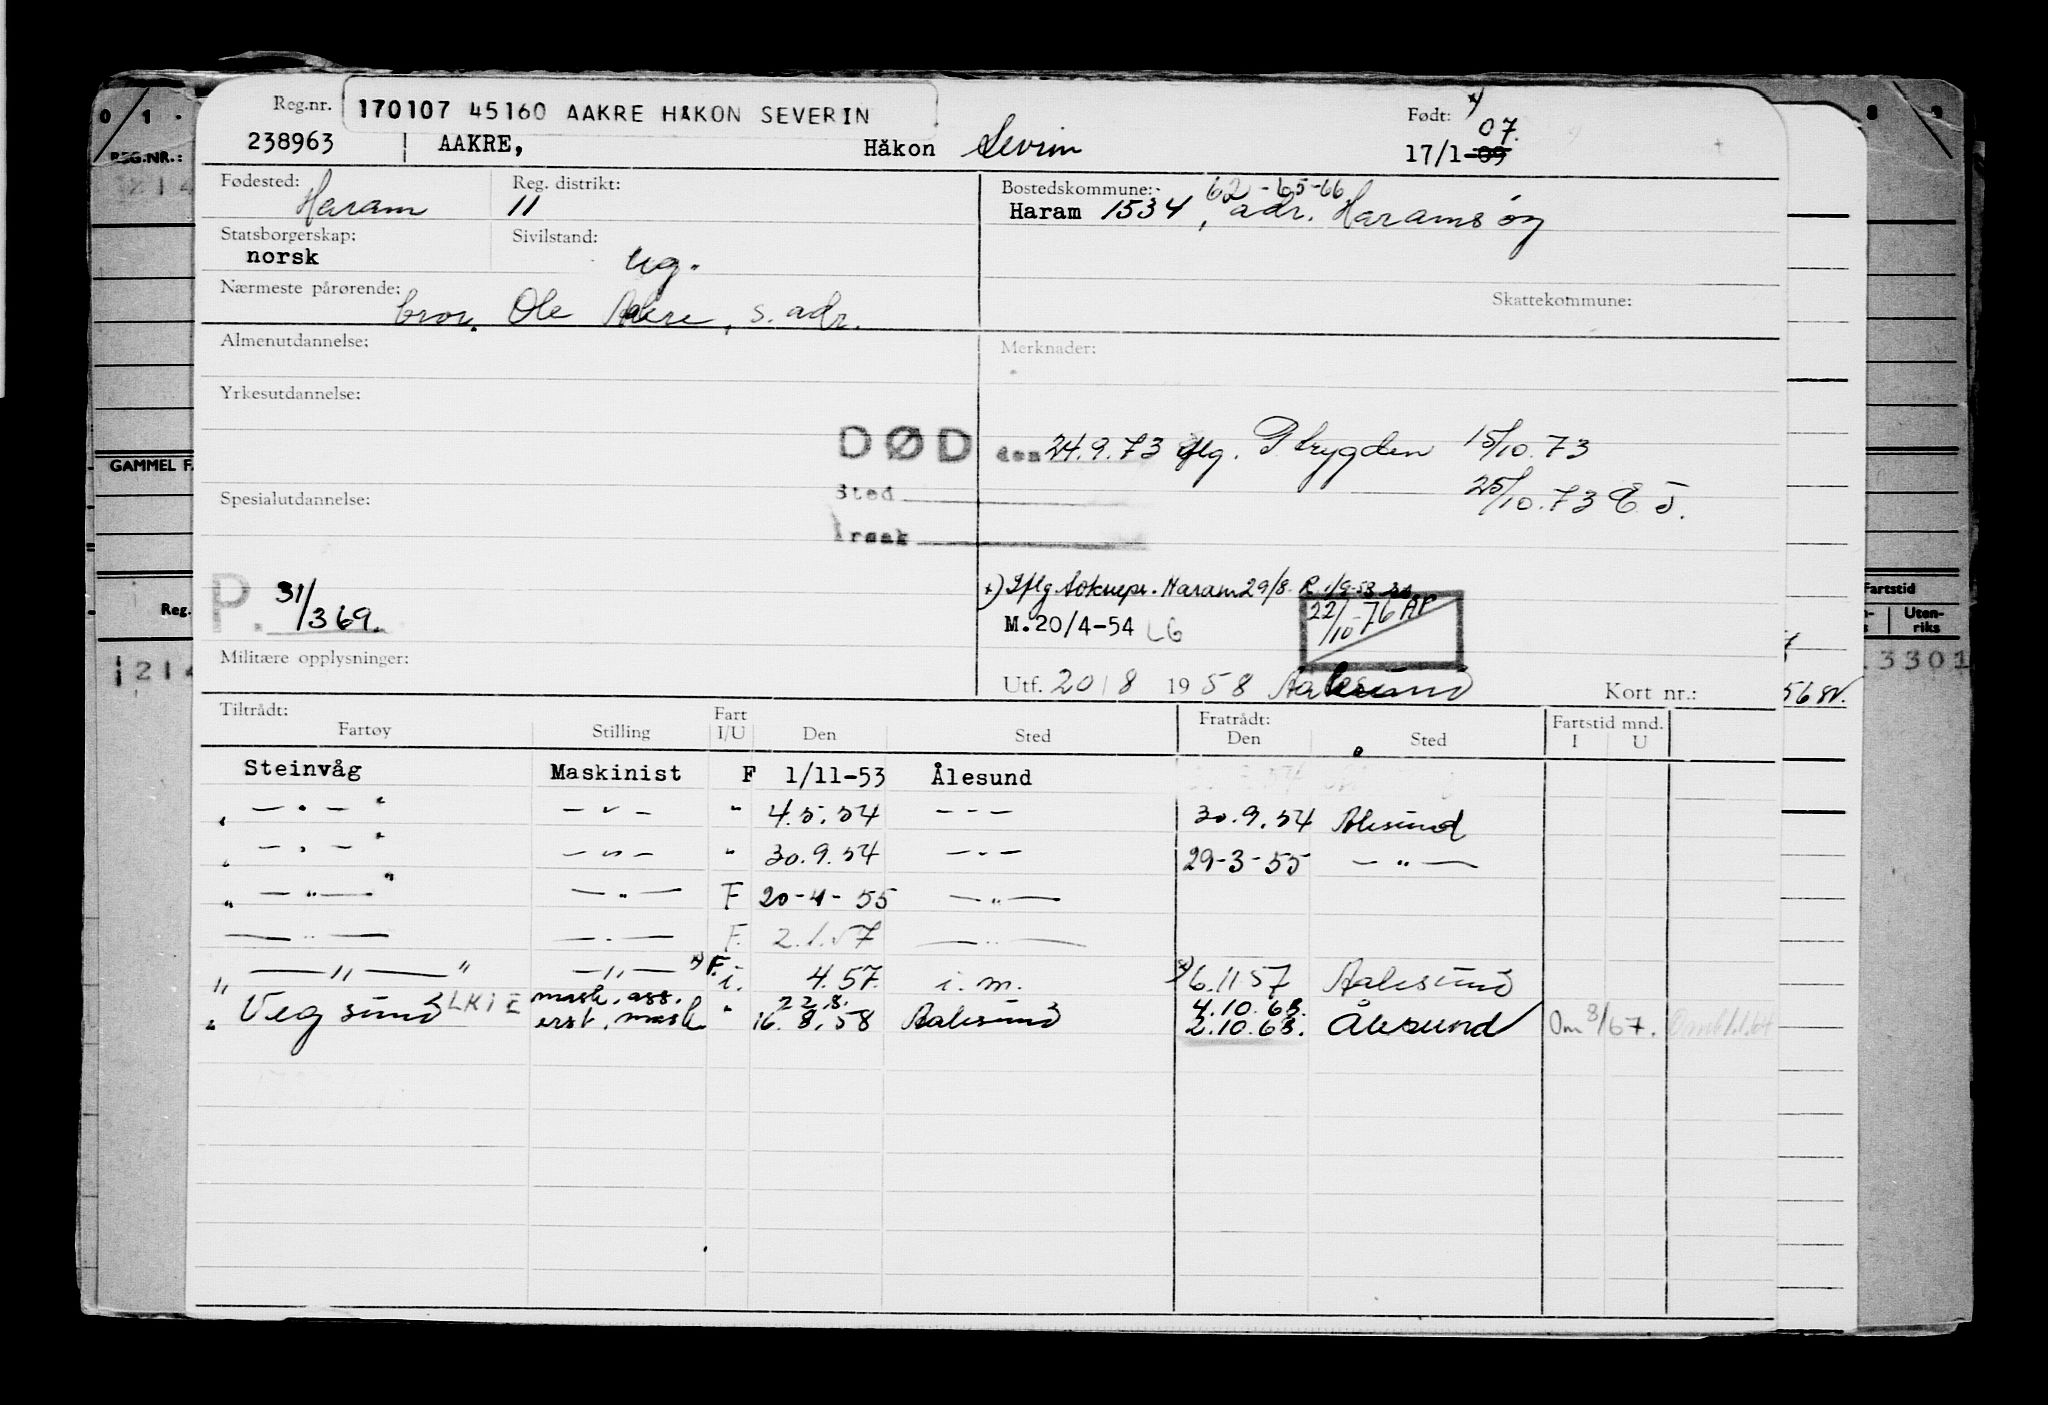 0 1 8 9
REG.NR.:
GAMMEL F.
Reg.
Fartstid
Uten-
riks
3301
Reg.nr.
170107 45160 AAKRE HÅKON SEVERIN
Født:
x)
238963 AAKRE, Håkon Severin 17/1-09 07.
Fødested: Haram
Reg. distrikt: 11
Bostedskommune: 62-65-66
Haram 1534, adr. Haramsøy
Statsborgerskap: norsk
Sivilstand: ug.
Nærmeste pårørende: bror. Ole Aakre, s. adr.
Skattekommune:
Almenutdannelse:
Merknader:
Yrkesutdannelse:
DØD den 24.9.73 iflg. P.trygden 15/10.73
Sted 25/10.73 E.J.
Årsak
Spesialutdannelse:
x) Iflg. Haram 29/8.
P. 31/369.
M.20/4-54 LG
22/10-76 AF
Militære opplysninger:
Utf. 20/8 1958 Aalesund
Kort nr.:
Tiltrådt: Fratrådt: Fartstid mnd.
Fartøy Stilling Fart I/U Den Sted Den Sted I U
Steinvåg Maskinist F 1/11-53 Ålesund
" — " — " — " — " 4.5.54 — — — 30.9.54 Ålesund
" — " — " — " — " 30.9.54 — " — 29-3-55 — " —
" — " — " — " — F 20-4-55 — " —
— " — — " — F. 2.1.57 — " —
" — " — " — " — x) F. i. 4.57. i.m. x) 6.11 57 Aalesund
mask. ass. 22.8. 4.10.63.
" Vegsund LKIE erst. mask " 16.8.58 Aalesund 2.10.63. Ålesund Om 8/67.